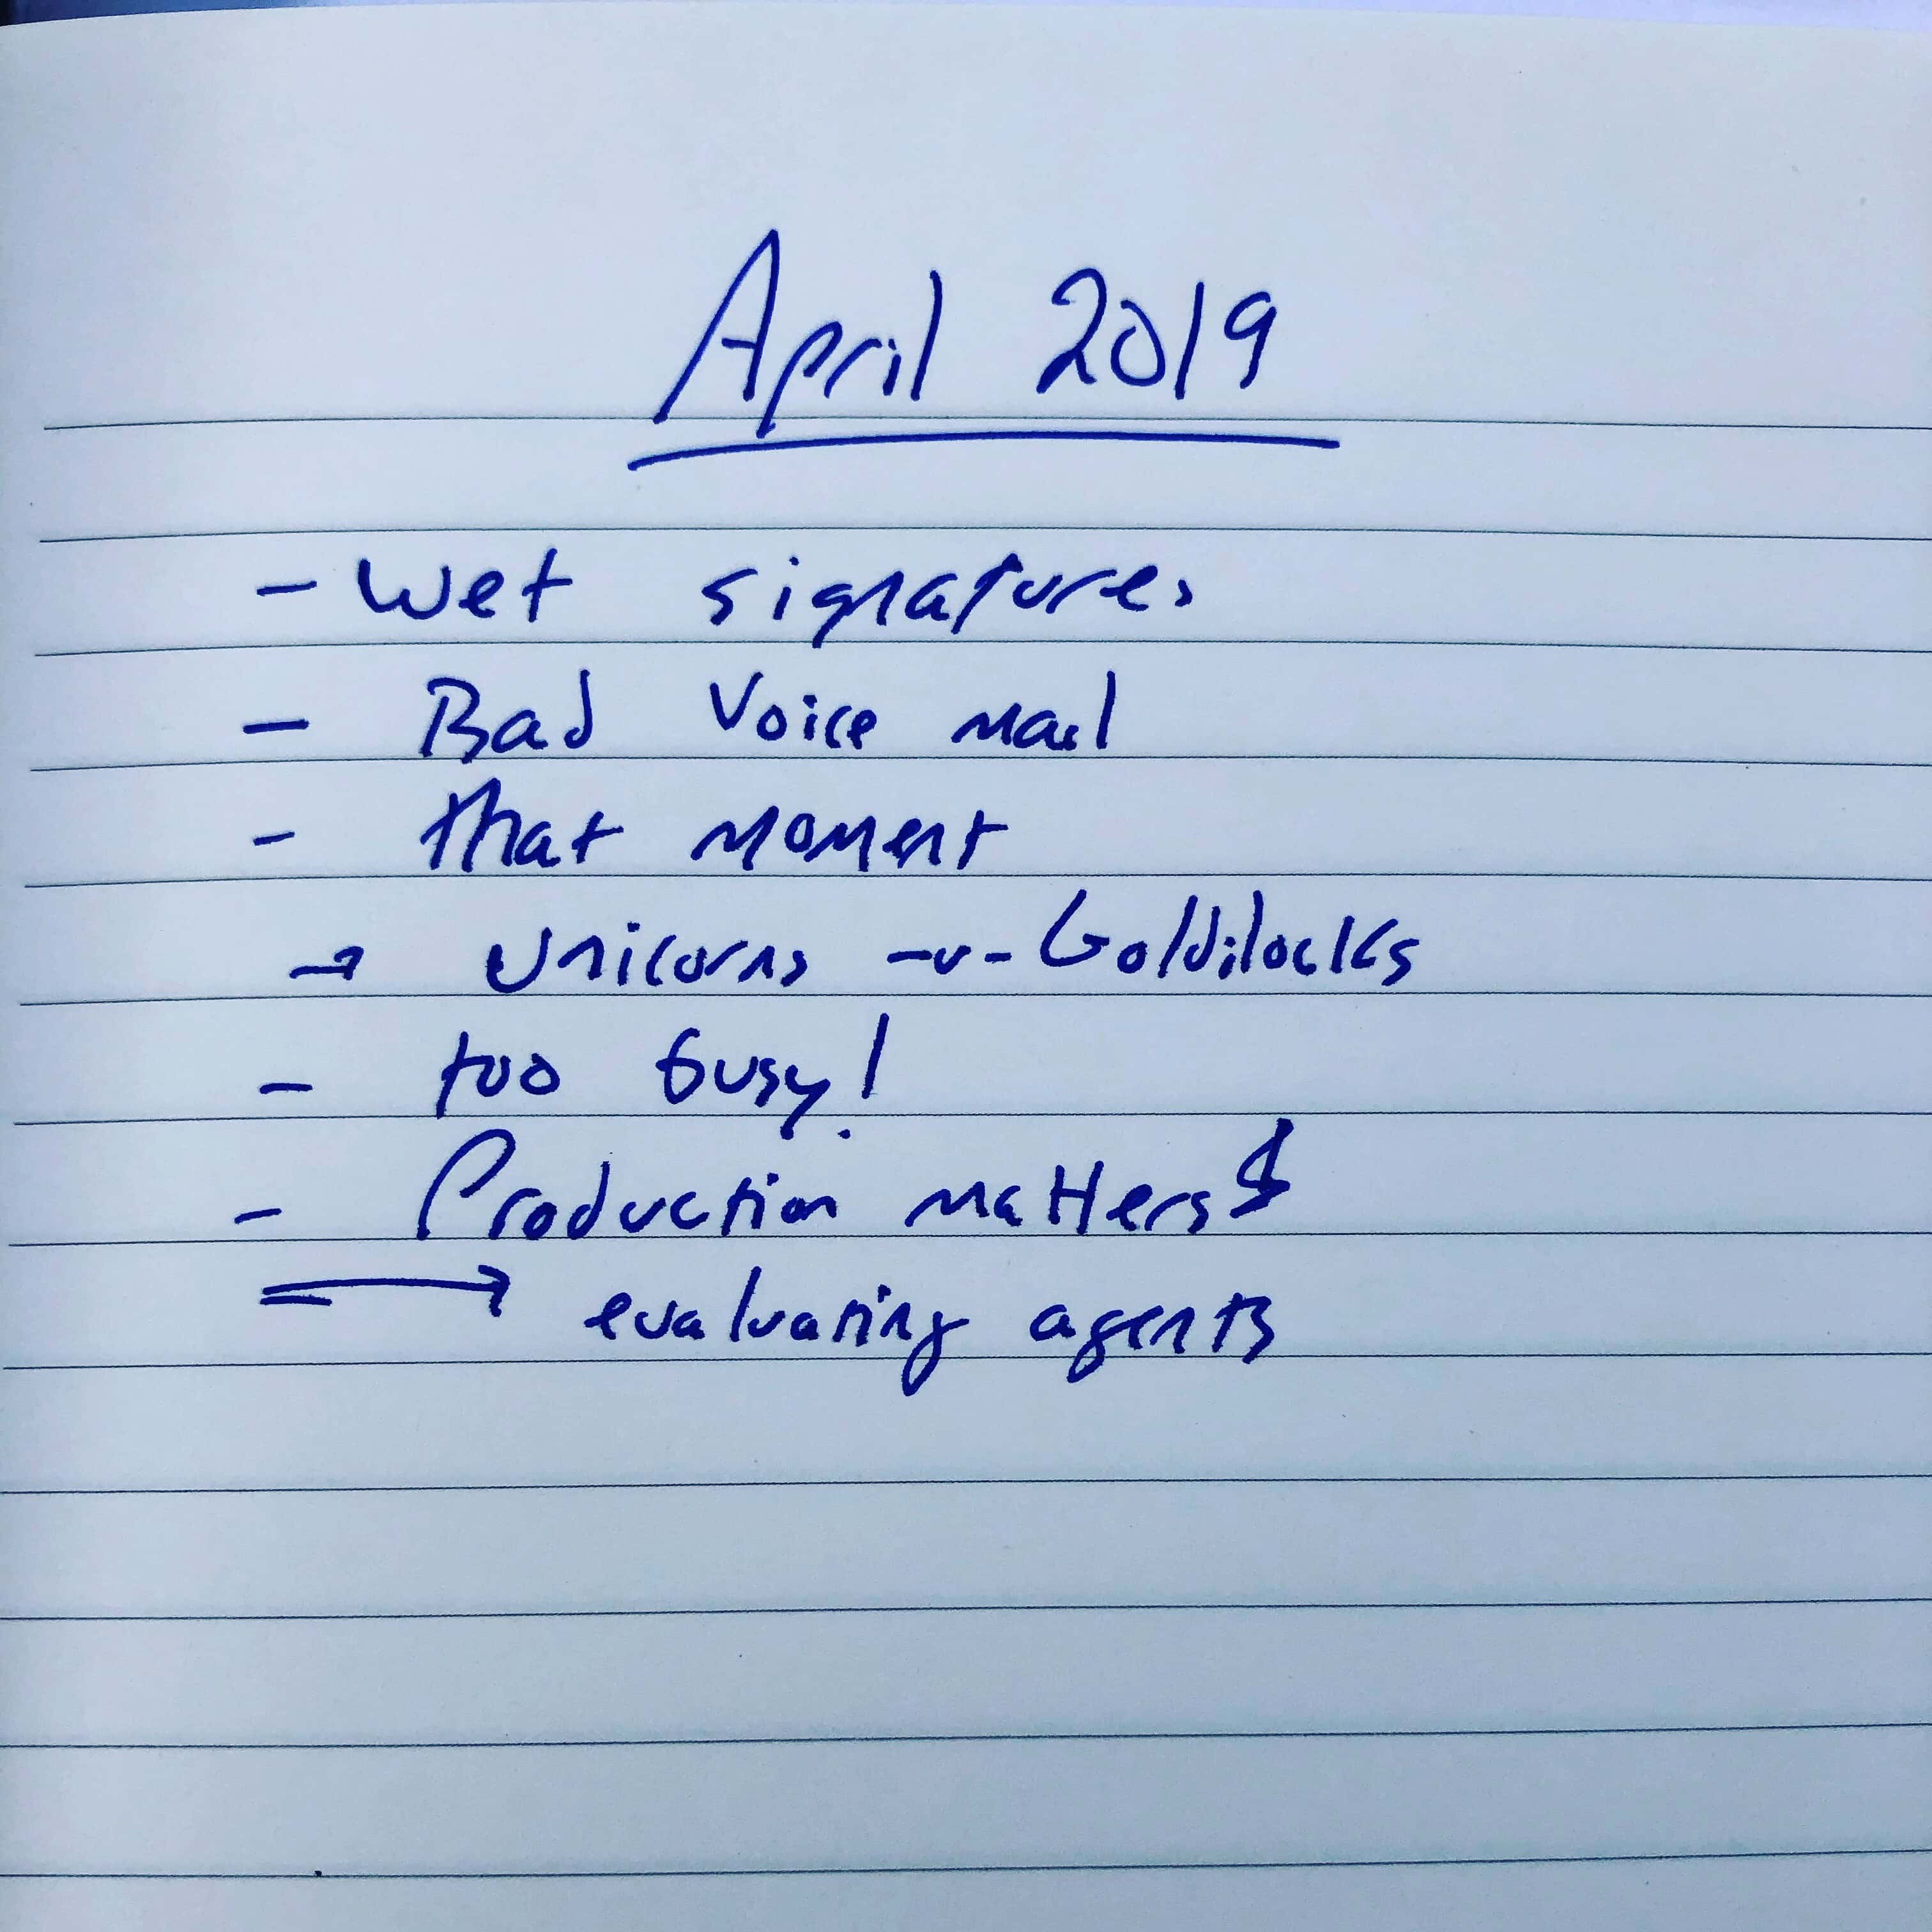 April 2019
- Wet signatures
- Bad Voice mail
- that moment
→ Unicorns -v- Goldilocks
- too busy!
- Production matters $
→ evaluating agents